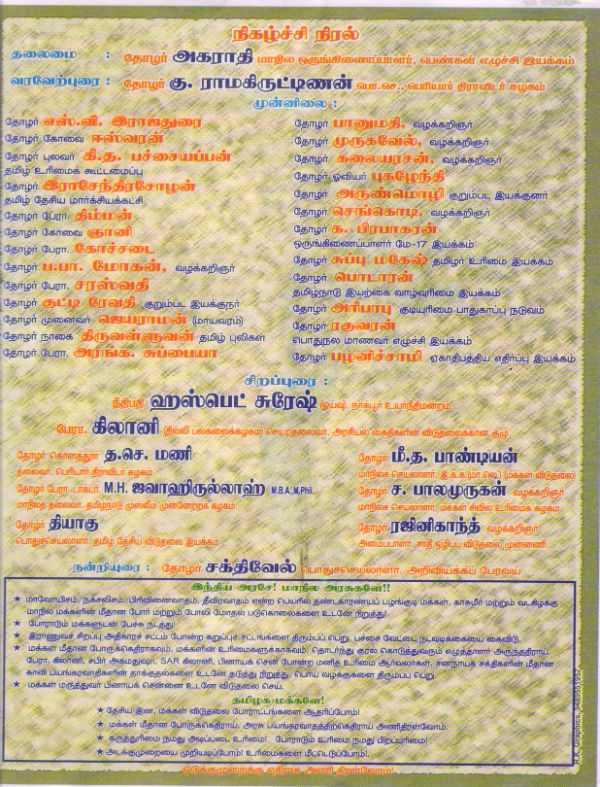 நிகழ்ச்சி நிரல்
தலைமை : தோழர் அகராதி மாநில ஒருங்கிணைப்பாளர், பெண்கள் எழுச்சி இயக்கம்
வரவேற்புரை : தோழர் கு. ராமகிருட்டிணன் பொ.செ., பெரியார் திராவிடர் கழகம்
முன்னிலை :
தோழர் எஸ்.வி. இராஜதுரை
தோழர் கோவை ஈஸ்வரன்
தோழர் புலவர் கி.த. பச்சையப்பன்
தமிழ் உரிமைக் கூட்டமைப்பு
தோழர் இராசேந்திரசோழன்
தமிழ் தேசிய மார்க்சியக்கட்சி
தோழர் பேரா. திம்மன்
தோழர் கோவை ஞானி
தோழர் பேரா. கோச்சடை
தோழர் ப.பா. மோகன், வழக்கறிஞர்
தோழர் பேரா. சரஸ்வதி
தோழர் குட்டி ரேவதி குறும்பட இயக்குநர்
தோழர் முனைவர் ஜெயராமன் (மாயவரம்)
தோழர் நாகை திருவள்ளுவன் தமிழ் புலிகள்
தோழர்.பேரா. அரங்க. சுப்பையா
தோழர் பானுமதி, வழக்கறிஞர்
தோழர் முருகவேல், வழக்கறிஞர்
தோழர் கலையரசன், வழக்கறிஞர்
தோழர் ஓவியர் புகழேந்தி
தோழர் அருண்மொழி குறும்பட இயக்குனர்
தோழர் செங்கொடி, வழக்கறிஞர்
தோழர் க. பிரபாகரன்
ஒருங்கிணைப்பாளர் மே-17 இயக்கம்
தோழர் சுப்பு மகேஷ் தமிழர் உரிமை இயக்கம்
தோழர் பொடாரன்
தமிழ்நாடு இயற்கை வாழ்வுரிமை இயக்கம்
தோழர் அரிபாபு குடியுரிமை பாதுகாப்பு நடுவம்
தோழர் ரகுவரன்
பொதுநல மாணவர் எழுச்சி இயக்கம்
தோழர் பழனிச்சாமி ஏகாதிபத்திய எதிர்ப்பு இயக்கம்
சிறப்புரை :
நீதிபதி ஹஸ்பெட் சுரேஷ் ஓய்வு, நாக்பூர் உயர்நீதிமன்றம்
பேரா. கிலானி (தில்லி பல்கலைக்கழகம்) செயற்தலைவர், அரசியல் கைதிகளின் விடுதலைக்கான குழு
தோழர் கொளத்தூர் த.செ. மணி
தலைவர், பெரியார் திராவிடர் கழகம்
தோழர் பேரா டாக்டர். M.H. ஜவாஹிருல்லாஹ் M.B.A.,M.Phil.
மாநில தலைவர், தமிழ்நாடு முஸ்லீம் முன்னேற்றக் கழகம்
தோழர் தியாகு
பொதுச்செயலாளர், தமிழ் தேசிய விடுதலை இயக்கம்
தோழர் மீ.த. பாண்டியன்
மாநில செயலாளர், இ.க.க.(மா.லெ.) (மக்கள் விடுதலை)
தோழர் ச. பாலமுருகன் வழக்கறிஞர்
மாநில செயலாளர், மக்கள் சிவில் உரிமைக் கழகம்
தோழர் ரஜினிகாந்த் வழக்கறிஞர்
அமைப்பாளர், சாதி ஒழிப்பு விடுதலை முன்னணி
நன்றியுரை : தோழர் சக்திவேல் பொதுச்செயலாளர், அறிவியக்கப் பேரவை
இந்திய அரசே! மாநில அரசுகளே!!
★ மாவோயிசம், நக்சலிசம், பிரிவினைவாதம், தீவிரவாதம் என்ற பெயரில் தண்டகாரண்யப் பழங்குடி மக்கள், காசுமீர் மற்றும் வடகிழக்கு
மாநில மக்களின் மீதான போர் மற்றும் போலி மோதல் படுகொலைகளை உடனே நிறுத்து!
★ போராடும் மக்களுடன் பேச்சு நடத்து!
★ இராணுவச் சிறப்பு அதிகாரச் சட்டம் போன்ற கறுப்புச் சட்டங்களை திரும்பப் பெறு. பச்சை வேட்டை நடவடிக்கையை கைவிடு.
★ மக்கள் மீதான போருக்கெதிராகவும், மக்களின் உரிமைகளுக்காகவும், தொடர்ந்து குரல் கொடுத்துவரும் எழுத்தாளர் அருந்ததிராய்,
பேரா. கிலானி, சபிர் அகமதுஷா, SAR கிலானி, பினாயக் சென் போன்ற மனித உரிமை ஆர்வலர்கள், சனநாயக சக்திகளின் மீதான
காவி பயங்கரவாதிகளின் தாக்குதல்களை உடனே தடுத்து நிறுத்து. பொய் வழக்குகளை திரும்பப் பெறு.
★ மக்கள் மருத்துவர் பினாயக் சென்னை உடனே விடுதலை செய்.
தமிழக மக்களே!
★ தேசிய இன, மக்கள் விடுதலை போராட்டங்களை ஆதரிப்போம்!
★ மக்கள் மீதான போருக்கெதிராய், அரசு பயங்கரவாதத்திற்கெதிராய் அணிதிரள்வோம்.
★ கருத்துரிமை நமது அடிப்படை உரிமை! போராடும் உரிமை நமது பிறப்புரிமை!
★ அடக்குமுறையை முறியடிப்போம்! உரிமைகளை மீட்டெடுப்போம்!.
ஒடுக்குமுறைக்கு எதிராக அணி திரள்வோம்!